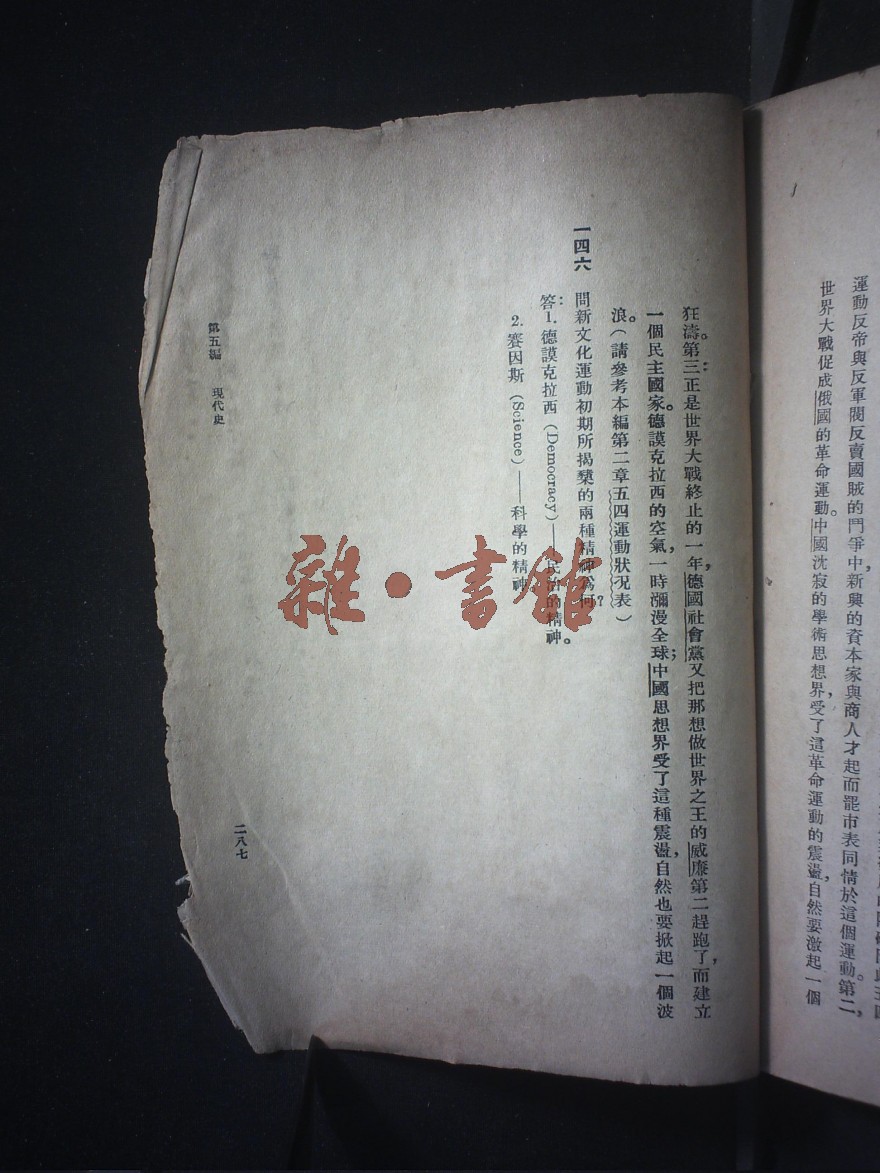 運動反帝與反軍閥反賣國賊的鬥爭中，新興的資本家與商人才起而罷市表同情於這個運動。第二，
世界大戰促成俄國的革命運動。中國沈寂的學術思想界，受了這革命運動的震盪，自然要激起一個
狂濤。第三：正是世界大戰終止的一年，德國社會黨又把那想做世界之王的威廉第二趕跑了，而建立
一個民主國家。德謨克拉西的空氣，一時瀰漫全球；中國思想界受了這種震盪，自然也要掀起一個波
浪。（請參考本編第二章五四運動狀況表）
一四六 問新文化運動初期所揭櫫的兩種精神爲何？
答：1. 德謨克拉西（Democracy）——民治的精神。
2. 賽因斯（Science）——科學的精神
第五編 現代史
二八七
雜·書館